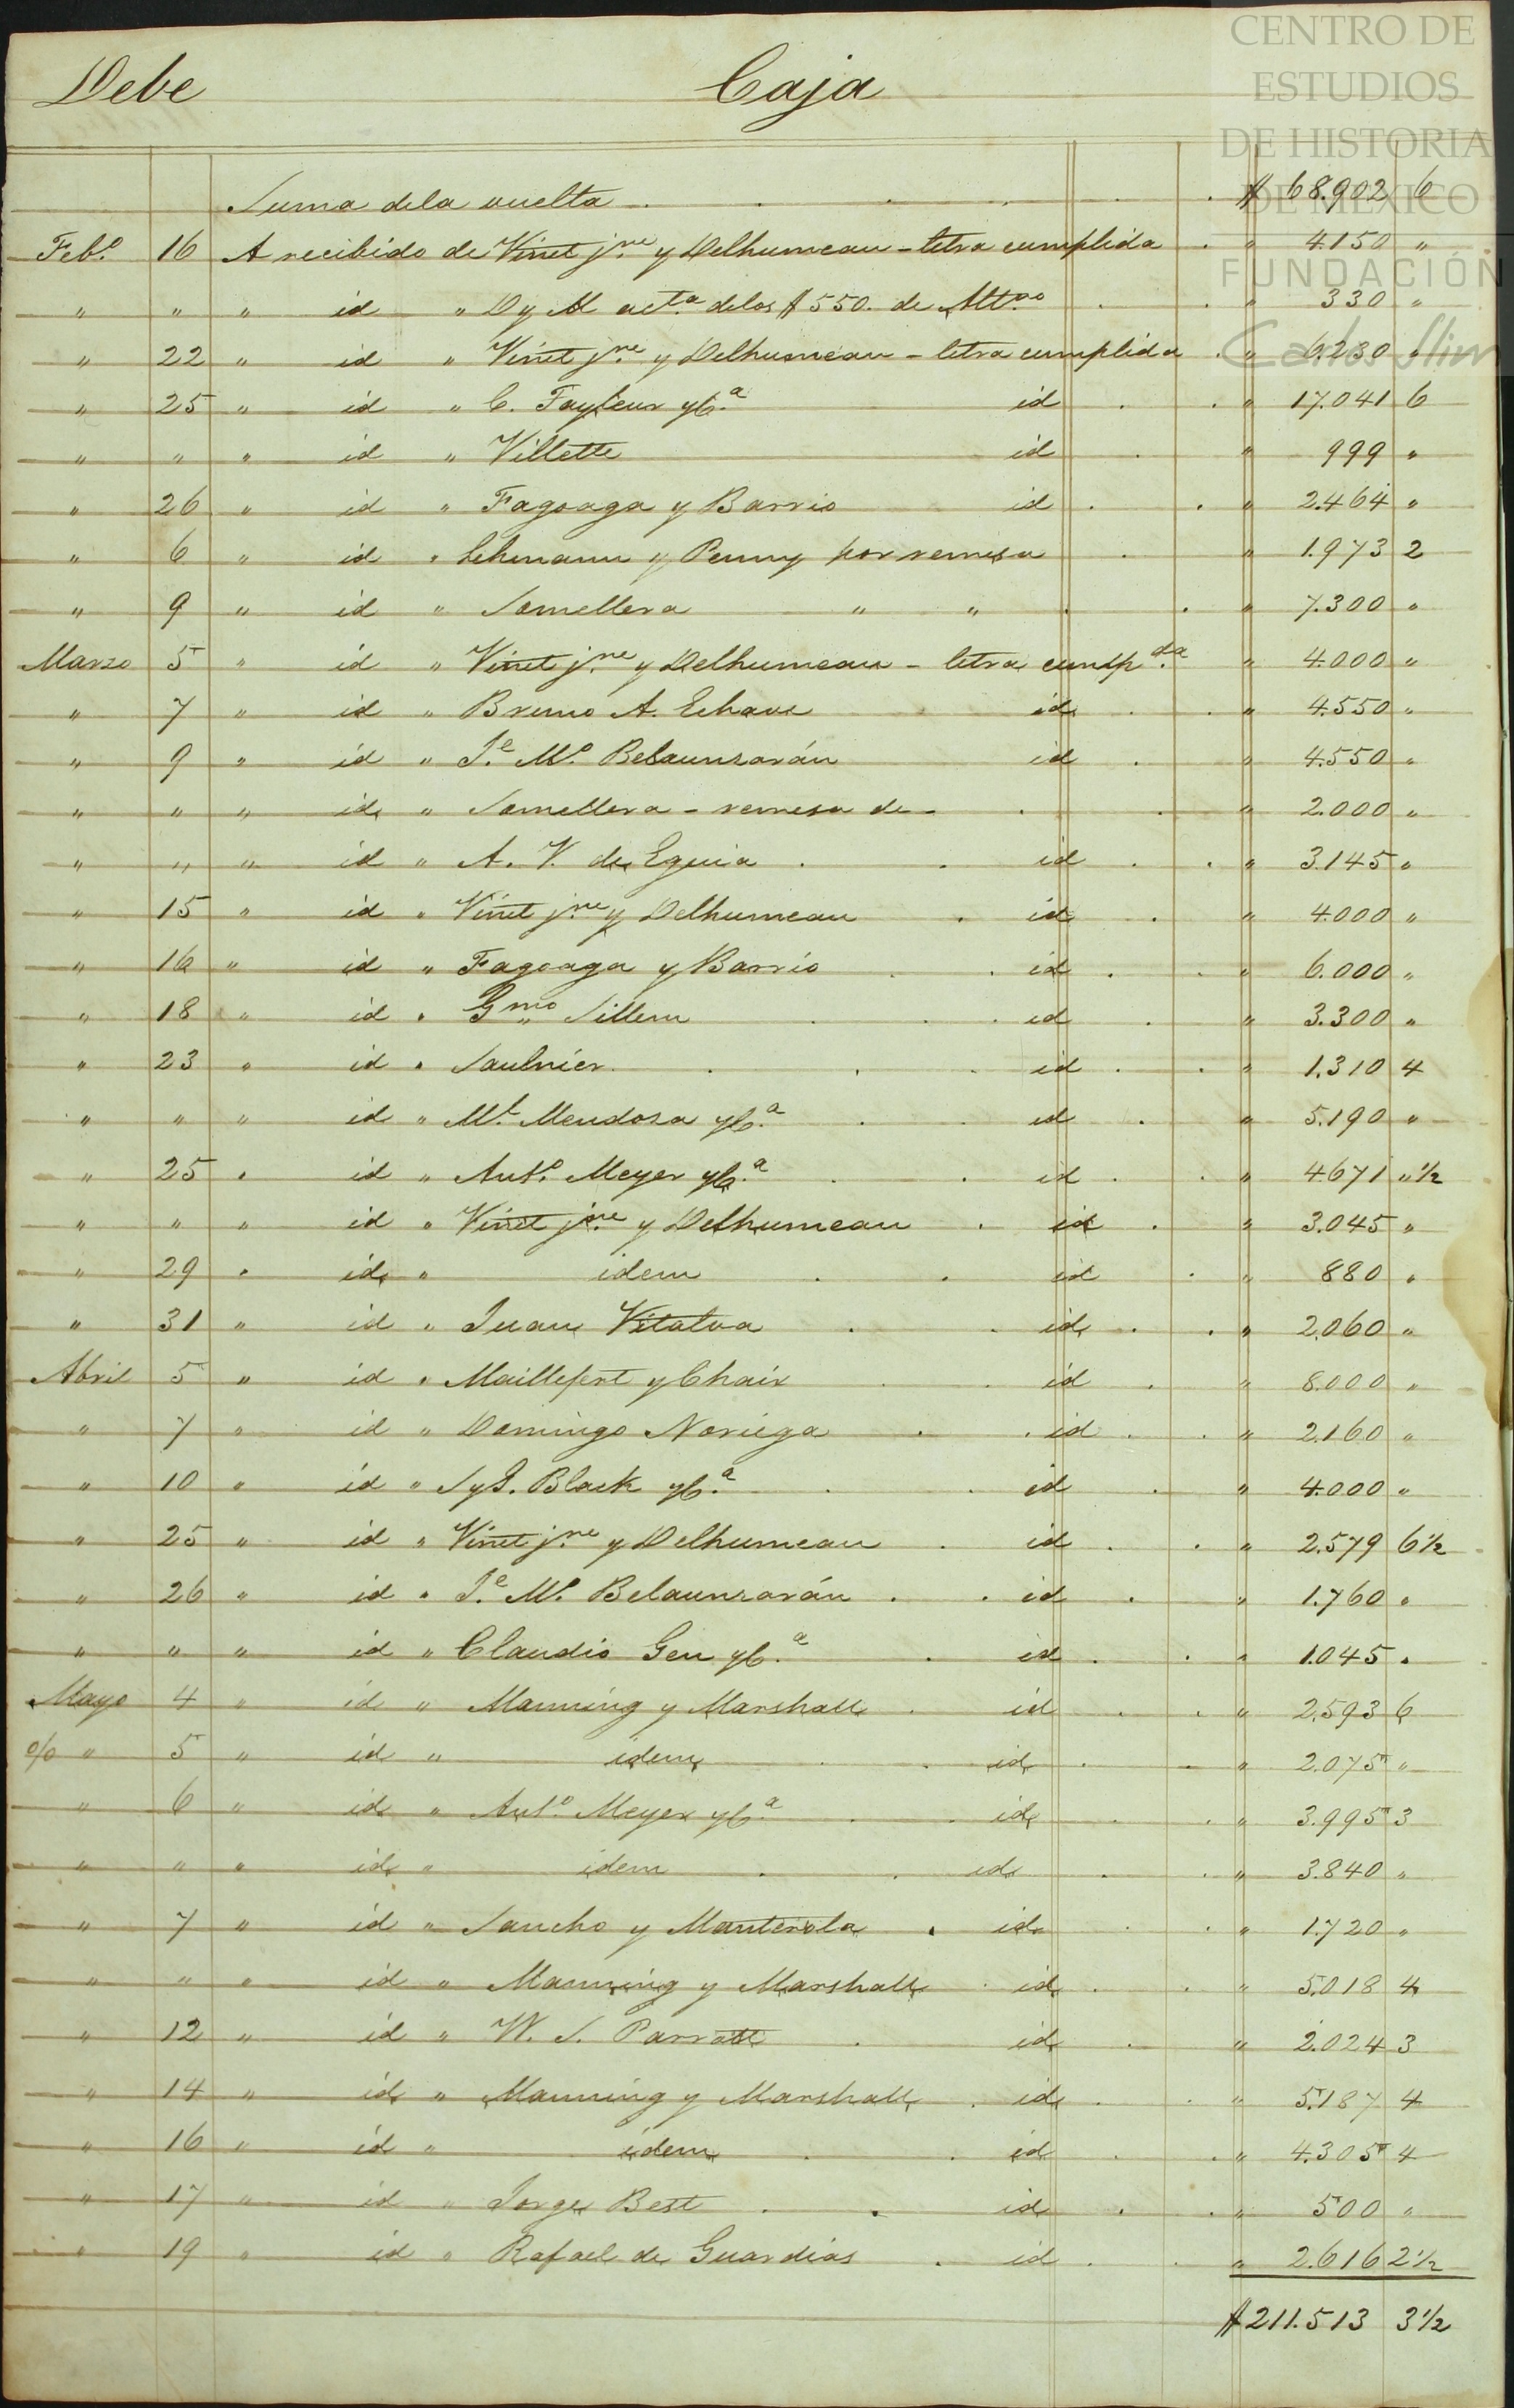 CENTRO DE
ESTUDIOS
DE HISTORIA
DE MÉXICO
FUNDACIÓN
Carlos Slim
Debe Caja
Suma dela vuelta $ 68.902 6
Feb.o 16 A recibido de Vinet j.ne y Delhumeau - letra cumplida " 4.150 "
" " " id " D y M act.a delos $550. de " 330 "
" 22 " id " Vinet j.ne y Delhumeau - letra cumplida " 6.230 "
" 25 " id " C. Tayleur yC.a id " 17.041 6
" " " id " Villette id " 999 "
" 26 " id " Fagoaga y Barrio id " 2.464 "
" 6 " id " Lehmann y Penny por remesa " 1.973 2
" 9 " id " Somellera " " " 7.300 "
Marzo 5 " id " Vinet j.ne y Delhumeau - letra cump.da " 4.000 "
" 7 " id " Bruno A. Echave id " 4.550 "
" 9 " id " J.e M.a Belaunzarán id " 4.550 "
" " " id " Somellera - remesa de " 2.000 "
" " " id " A. V. de Eguia id " 3.145 "
" 15 " id " Vinet j.ne y Delhumeau id " 4.000 "
" 16 " id " Fagoaga y Barrio id " 6.000 "
" 18 " id " Gmo Sillem id " 3.300 "
" 23 " id " Saulnier id " 1.310 4
" " " id " M.l Mendosa yC.a id " 5.190 "
" 25 " id " Ant.o Meyer yC.a id " 4.671 " 1/2
" " " id " Vinet j.ne y Delhumeau id " 3.045 "
" 29 " id " idem id " 880 "
" 31 " id " Juan Vitalva id " 2.060 "
Abril 5 " id " Maillefert y Chaix id " 8.000 "
" 7 " id " Domingo Noriega id " 2.160 "
" 10 " id " S y J. Black yC.a id " 4.000 "
" 25 " id " Vinet j.ne y Delhumeau id " 2.579 6 1/2
" 26 " id " J.e M.a Belaunzarán id " 1.760 "
" " " id " Claudio Gen yC.a id " 1.045 "
Mayo 4 " id " Manning y Marshall id " 2.593 6
% " 5 " id " idem id " 2.075 "
" 6 " id " Ant.o Meyer yC.a id " 3.995 3
" " " id " idem id " 3.840 "
" 7 " id " Sancho y Manterola id " 1.720 "
" " " id " Manning y Marshall id " 5.018 4
" 12 " id " W. S. Parrott id " 2.024 3
" 14 " id " Manning y Marshall id " 5.187 4
" 16 " id " idem id " 4.305 4
" 17 " id " Jorge Best id " 500 "
" 19 " id " Rafael de Guardias id " 2.616 2 1/2
$ 211.513 3 1/2